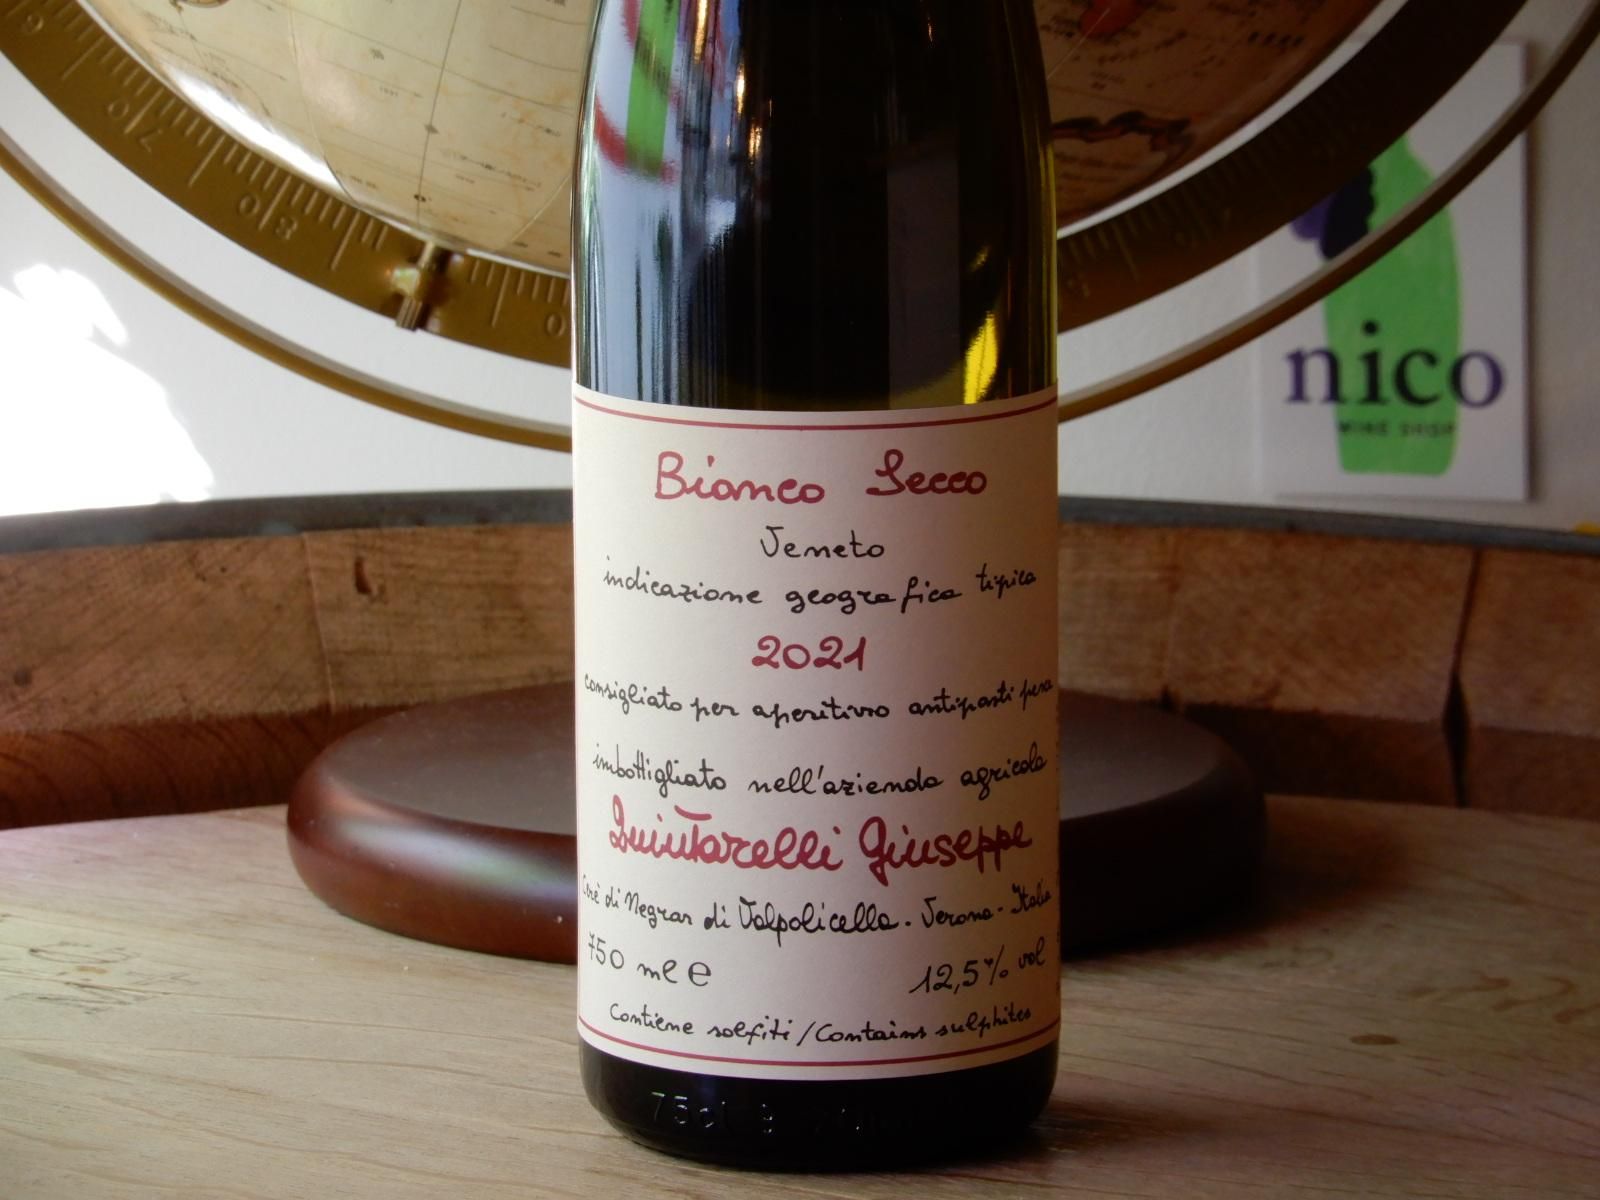 nico
WINE SHOP
Bianco Secco
Veneto
indicazione geografica tipica
2021
consigliato per aperitivo antipasti pesce
imbottigliato nell'azienda agricola
Quintarelli Giuseppe
Cerè di Negrar di Valpolicella - Verona - Italia
750 ml e
12,5% vol
Contiene solfiti/Contains sulphites
75cl